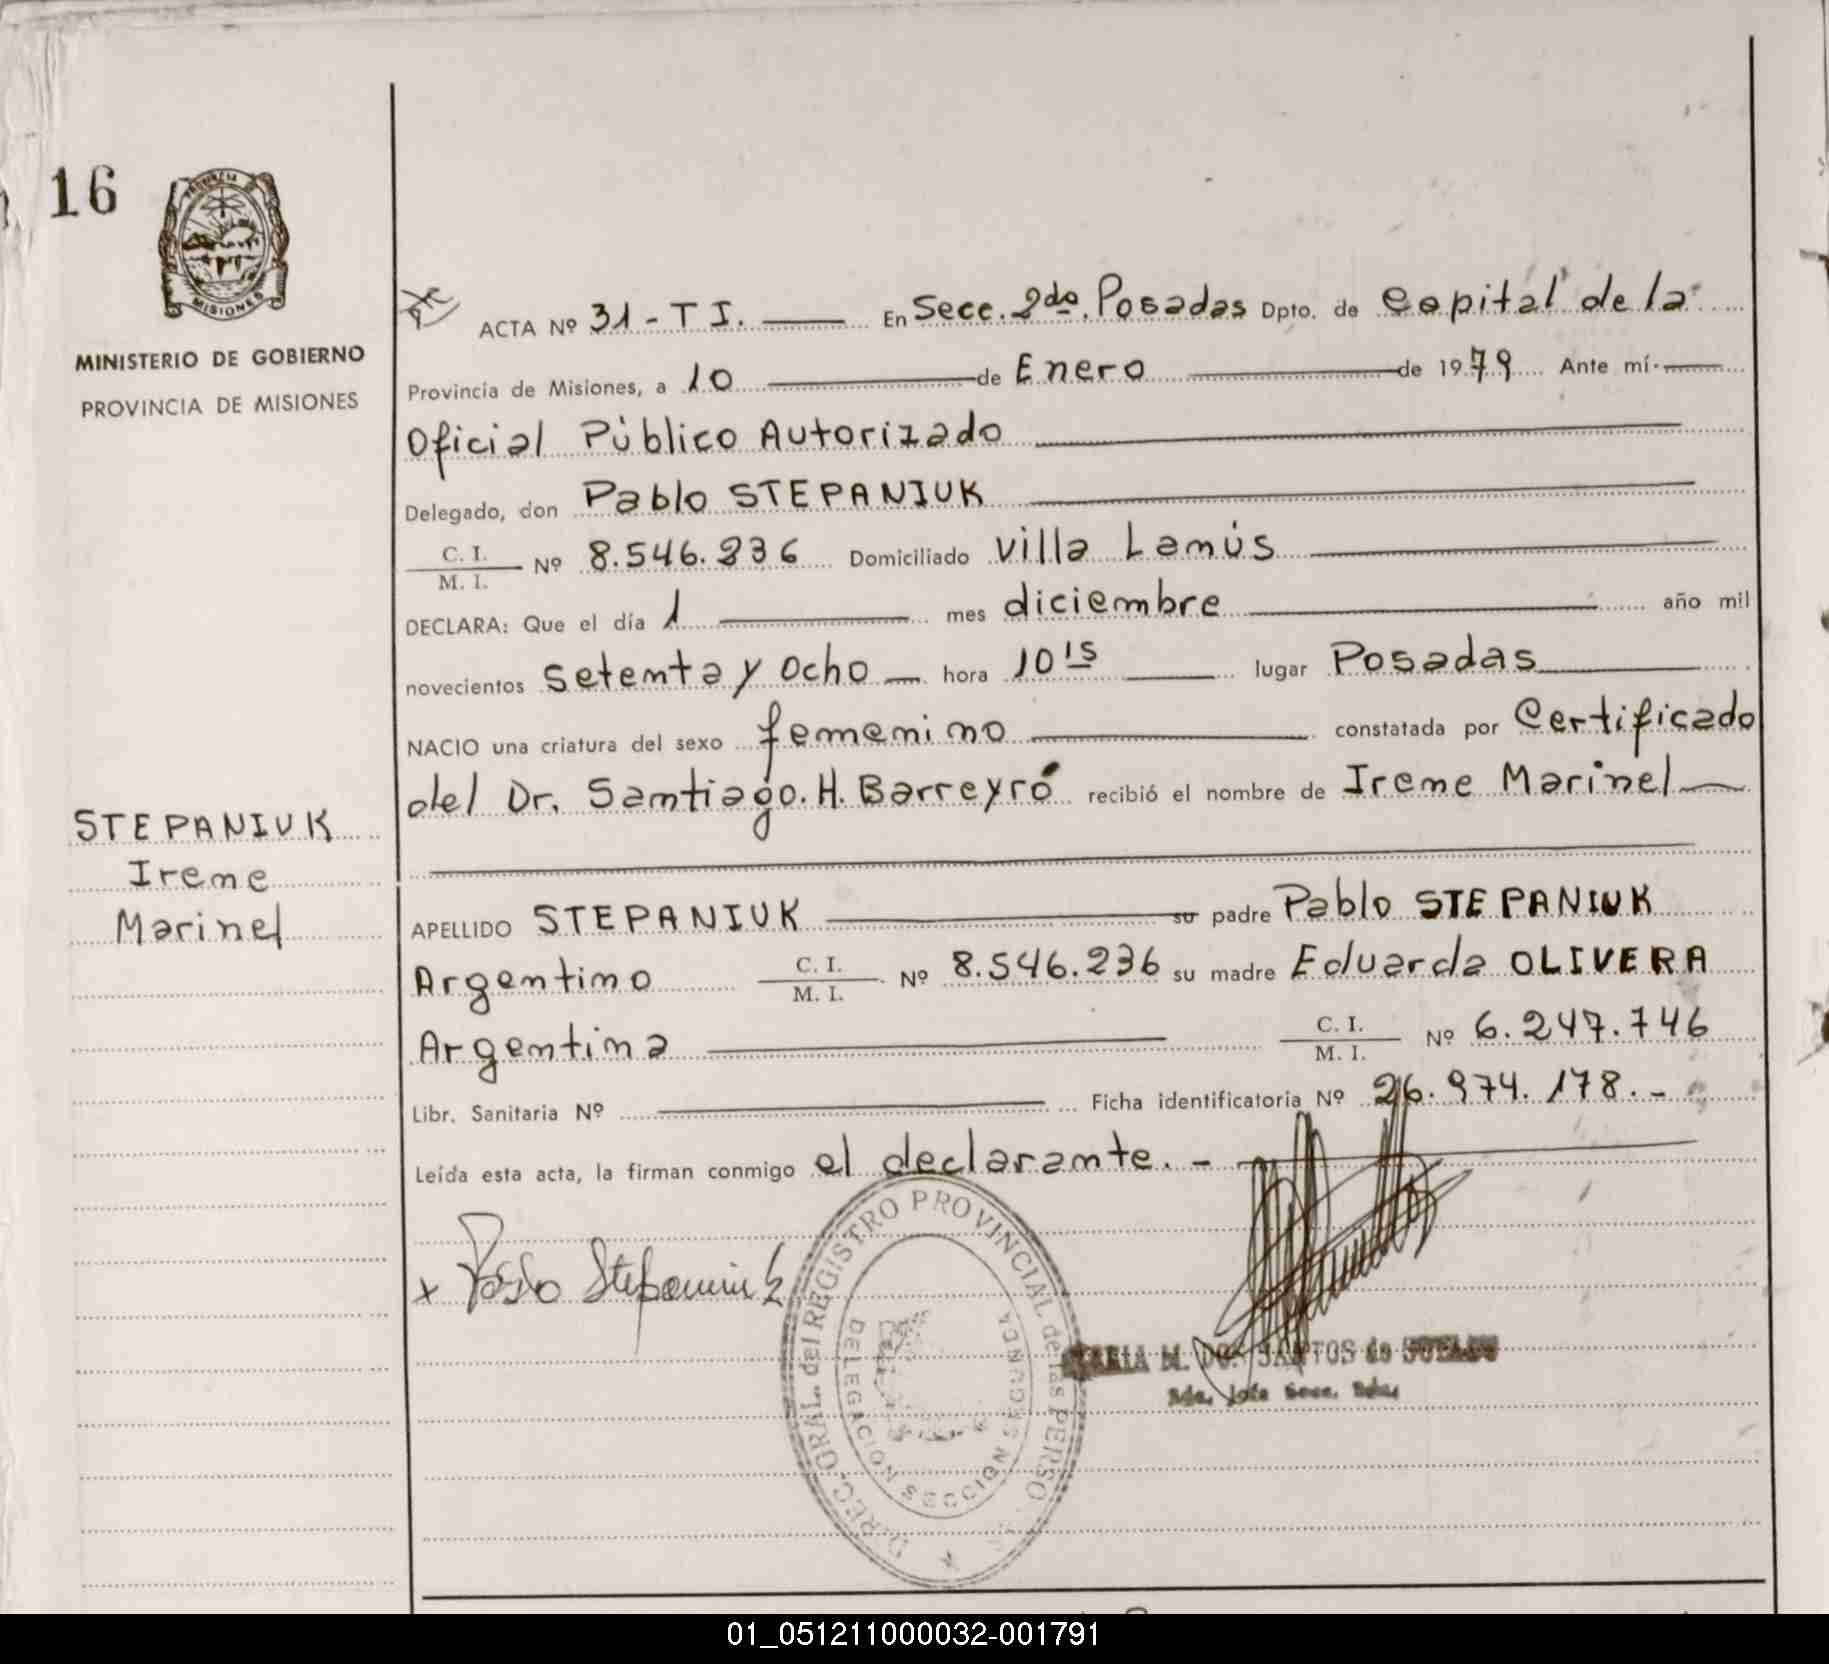 16
PROVINCIA DE
MISIONES
MINISTERIO DE GOBIERNO
PROVINCIA DE MISIONES
STEPANIUK
Irene
Marinel
ACTA Nº 31 - T I. En Secc. 2da. Posadas Dpto. de Capital de la
Provincia de Misiones, a 10 de Enero de 1979 Ante mí
Oficial Público Autorizado
Delegado, don Pablo STEPANIUK
C. I.
M. I. Nº 8.546.236 Domiciliado Villa Lanús
DECLARA: Que el día 1 mes diciembre año mil
novecientos setenta y ocho hora 10 15 lugar Posadas
NACIO una criatura del sexo femenino constatada por Certificado
del Dr. Santiago. H. Barreyró recibió el nombre de Irene Marinel
APELLIDO STEPANIUK su padre Pablo STEPANIUK
Argentino C. I. M. I. Nº 8.546.236 su madre Eduarda OLIVERA
Argentina C. I. M. I. Nº 6.247.746
Libr. Sanitaria Nº Ficha identificatoria Nº 26.974.178.-
Leída esta acta, la firman conmigo el declarante. -
x Pablo Stepaniuk
DIREC. GRAL. del REGISTRO PROVINCIAL de las PERSO
DELEGACION SECCION SEGUNDA
MARIA M. DOS SANTOS de
01_051211000032-001791